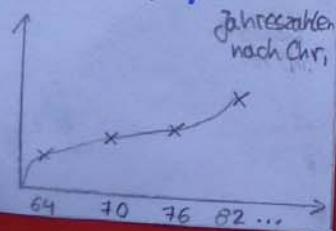 Jahreszahlen
nach Chr.
64 70 76 82 ...